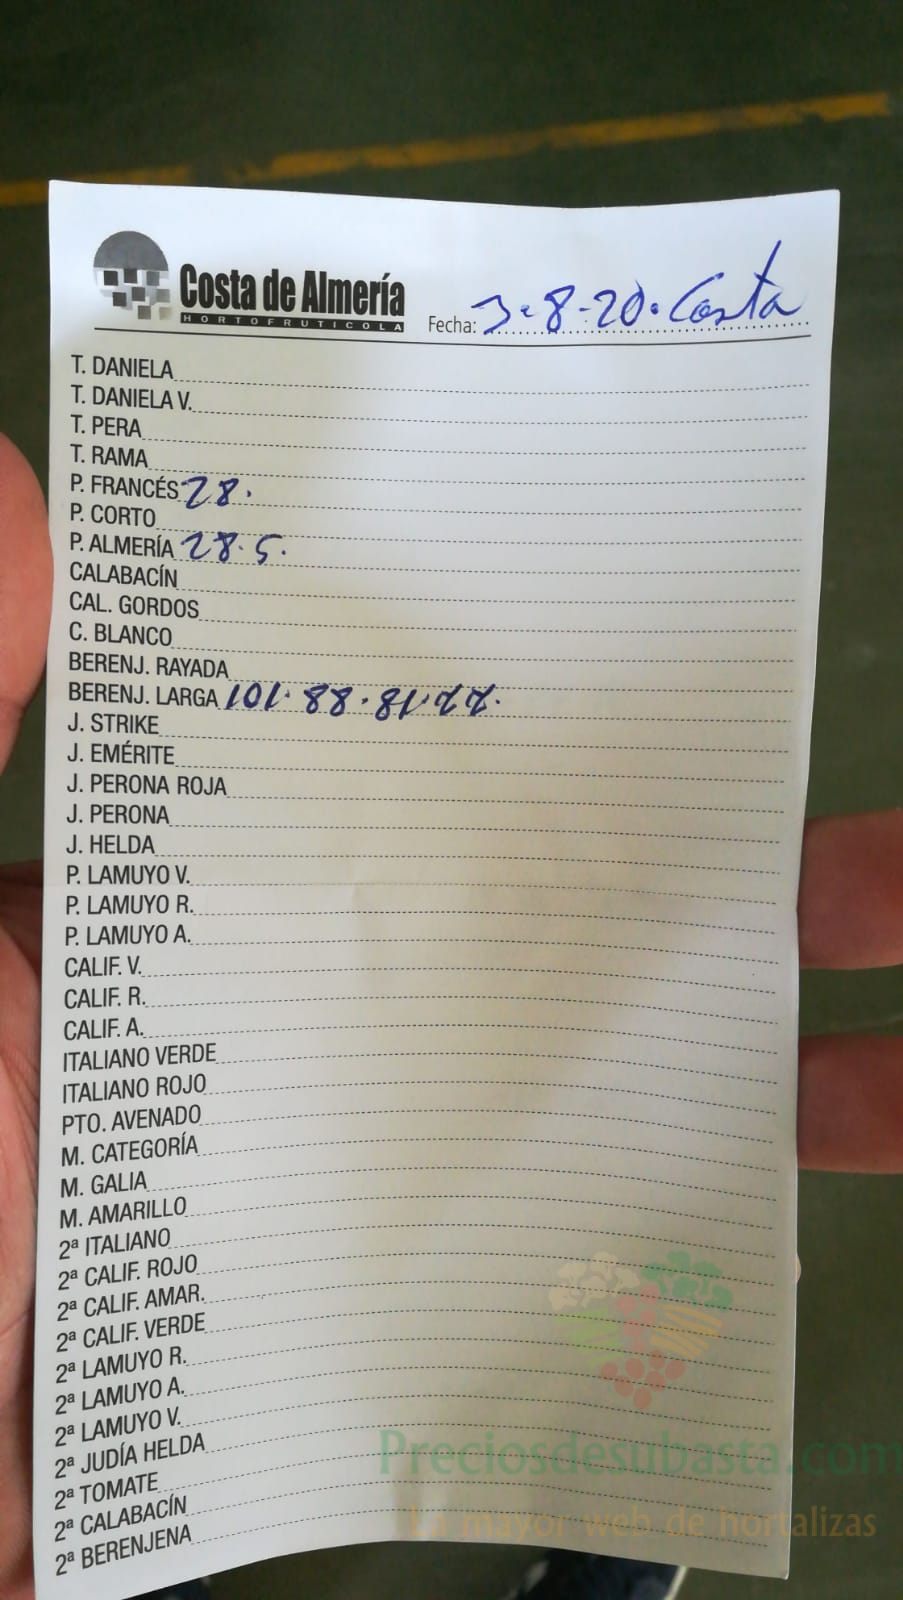 Costa de Almería
HORTOFRUTICOLA
Fecha: 3-8-20. Costa
T. DANIELA
T. DANIELA V.
T. PERA
T. RAMA
P. FRANCÉS 28.
P. CORTO
P. ALMERÍA 28.5.
CALABACÍN
CAL. GORDOS
C. BLANCO
BERENJ. RAYADA
BERENJ. LARGA 101. 88. 81. 77.
J. STRIKE
J. EMÉRITE
J. PERONA ROJA
J. PERONA
J. HELDA
P. LAMUYO V.
P. LAMUYO R.
P. LAMUYO A.
CALIF. V.
CALIF. R.
CALIF. A.
ITALIANO VERDE
ITALIANO ROJO
PTO. AVENADO
M. CATEGORÍA
M. GALIA
M. AMARILLO
2ª ITALIANO
2ª CALIF. ROJO
2ª CALIF. AMAR.
2ª CALIF. VERDE
2ª LAMUYO R.
2ª LAMUYO A.
2ª LAMUYO V.
2ª JUDÍA HELDA
2ª TOMATE
2ª CALABACÍN
2ª BERENJENA
Preciosdesubasta.com
La mayor web de hortalizas